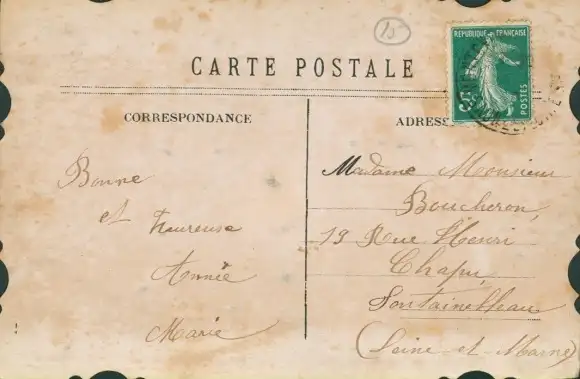 15
CARTE POSTALE
REPUBLIQUE FRANÇAISE
5c
POSTES
CORRESPONDANCE
ADRESS
Bonne
et heureuse
Année
Marie
Madame Monsieur
Boucheron,
19 Rue Henri
Chapu,
Fontainebleau
(Seine-et-Marne)